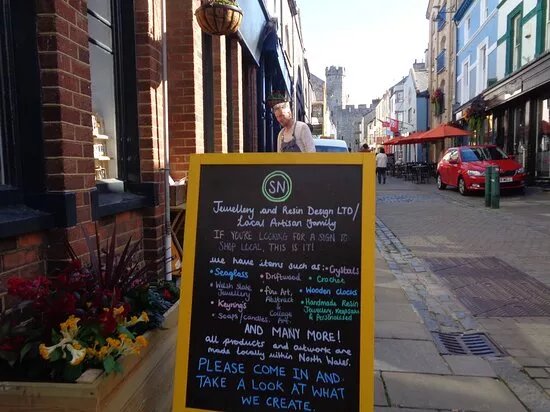 SN
Jewellery and Resin Design LTD/
Local Artisan Family
IF YOU'RE LOOKING FOR A SIGN TO
SHOP LOCAL, THIS IS IT!
we have items such as:- Crystals
• Seaglass • Driftwood • Crochet
• Welsh Slate Jewellery • Fine Art, Abstract & Collage Art. • Wooden clocks
• Keyrings • Handmade Resin Jewellery, Keepsake & Personalised
• Soaps/candles.
AND MANY MORE!
all products and artwork are
made locally within North Wales.
PLEASE COME IN AND
TAKE A LOOK AT WHAT
WE CREATE.